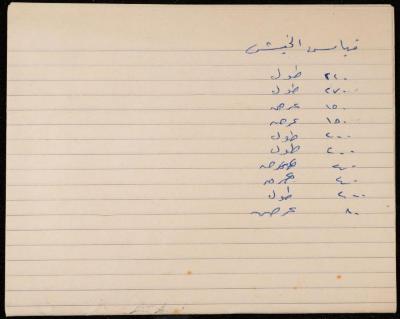 قياس الخيش
٢٢٠ طول
٢٧٠ طول
١٥٠ عرض
١٥٠ عرض
٢٠٠ طول
٢٠٠ طول
عرض
عرض
٢٠٠ طول
٨٠ عرض